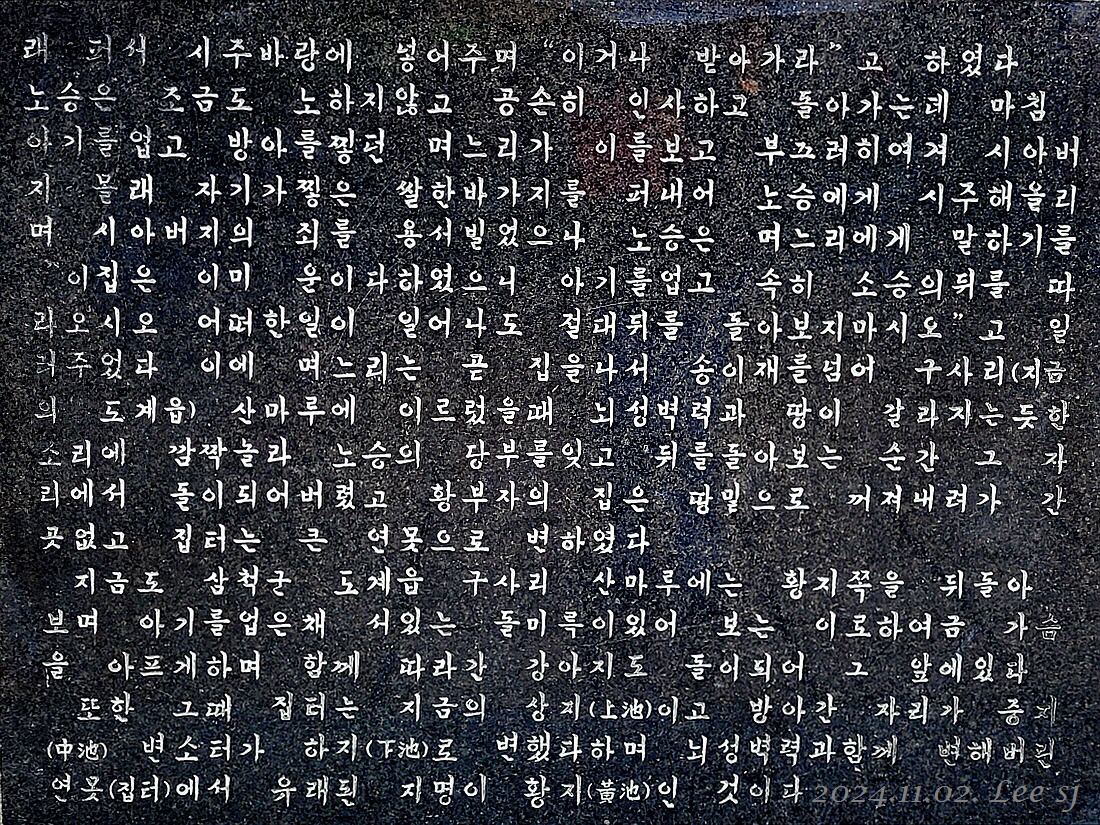 래 퍼서 시주바랑에 넣어주며 “이거나 받아가라” 고 하였다
노승은 조금도 노하지않고 공손히 인사하고 돌아가는데 마침
아기를업고 방아를찧던 며느리가 이를보고 부끄러히여겨 시아버
지 몰래 자기가찧은 쌀한바가지를 퍼내어 노승에게 시주해올리
며 시아버지의 죄를 용서빌었으나 노승은 며느리에게 말하기를
“이집은 이미 운이다하였으니 아기를업고 속히 소승의뒤를 따
라오시오 어떠한일이 일어나도 절대뒤를 돌아보지마시오” 고 일
러주었다 이에 며느리는 곧 집을나서 송이재를넘어 구사리(지금
의 도계읍) 산마루에 이르렀을때 뇌성벽력과 땅이 갈라지는듯한
소리에 깜짝놀라 노승의 당부를잊고 뒤를돌아보는 순간 그 자
리에서 돌이되어버렸고 황부자의 집은 땅밑으로 꺼져내려가 간
곳없고 집터는 큰 연못으로 변하였다
지금도 삼척군 도계읍 구사리 산마루에는 황지쪽을 뒤돌아
보며 아기를업은채 서있는 돌미륵이있어 보는 이로하여금 가슴
을 아프게하며 함께 따라간 강아지도 돌이되어 그 앞에있다
또한 그때 집터는 지금의 상지(上池)이고 방아간 자리가 중지
(中池) 변소터가 하지(下池)로 변했다하며 뇌성벽력과함께 변해버린
연못(집터)에서 유래된 지명이 황지(黃池)인 것이다
2024.11.02. Lee sj